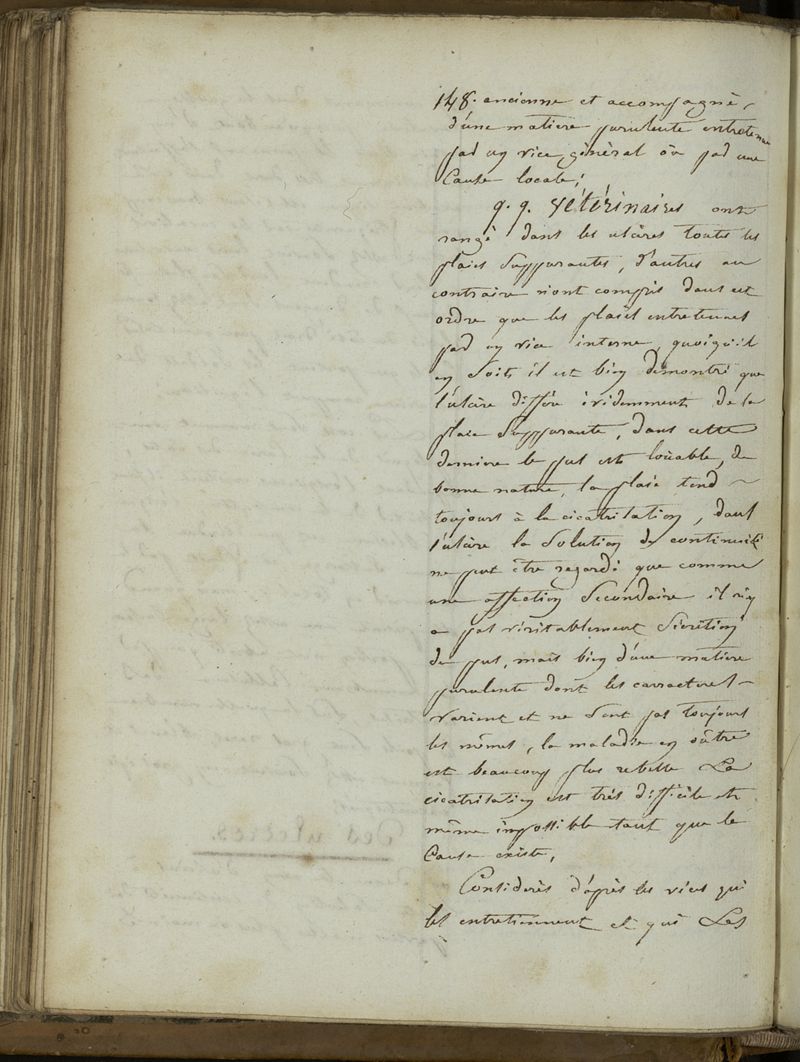 148. ancienne et accompagné
d'une matiere purulente entretenue
pad un vice génèral ôu pad une
Cause locale;
q. q. Vétérinaires ont
rangé dans les ulcères toutes les
plaies Suppurantes, d'autres au
contraire n'ont compris dans cet
ordre que les plaies entretenues
pad un vice interne, quoiqu'il
en Soit, il est bien démontré que
l'ulcère diffère évidemment de la
plaie Suppurante, dans cette
derniere le pus est loüable, de
bonne nature, la plaie tend ~
toujours à la cicatrisation, dans
l'ulcère la Solution de continuité
ne peut être regardé que comme
une affection Secondaire il n'y
a pas véritablement Sécrétion
de pus, mais bien d'une matiere
purulente dont les carracteres ~
varient et ne Sont pas toujours
les mêmes, la maladie en oûtre
est beaucoup plus rebelle La
cicatrisation est très difficile et
même impossible tant que la
Cause existe,
Considerés d'après les vices qui
les entretiennent et qui Les
Des ulceres.